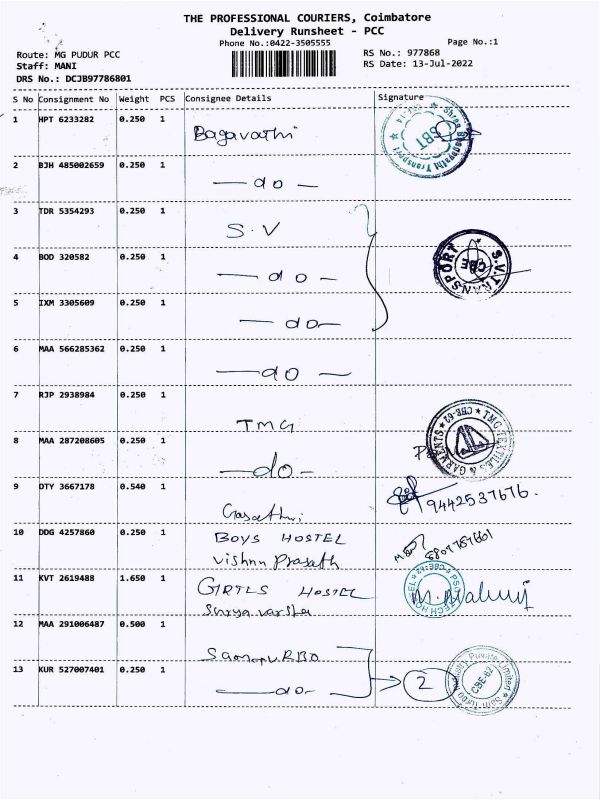 THE PROFESSIONAL COURIERS, Coimbatore
Delivery Runsheet - PCC
Phone No.:0422-3505555
Page No.:1
Route: MG PUDUR PCC
RS No.: 977868
Staff: MANI
RS Date: 13-Jul-2022
DRS No.: DCJB97786801
S No Consignment No Weight PCS Consignee Details Signature
1 HPT 6233282 0.250 1
Bagavathi
Shree Bhagavathi Transport
SBT
2 BJH 485002659 0.250 1
— do —
3 TDR 5354293 0.250 1
S.V
4 BOD 320582 0.250 1
— do —
S.V. TRANSPORT
CBE
5 IXM 3305609 0.250 1
— do —
6 MAA 566285362 0.250 1
— do —
7 RJP 2938984 0.250 1
TMG
TMG TEXTILES & GARMENTS
CBE-62
8 MAA 287208605 0.250 1
— do —
9 DTY 3667178 0.540 1
9442537676.
10 DDG 4257860 0.250 1
BOYS HOSTEL
Vishnu Prasath
11 KVT 2619488 1.650 1
GIRLS HOSTEL
Surya varsha
PSG TECH HOSTEL
CBE-62
12 MAA 291006487 0.500 1
13 KUR 527007401 0.250 1
— do —
2
Sam Turbo Industry Private Limited
CBE-62